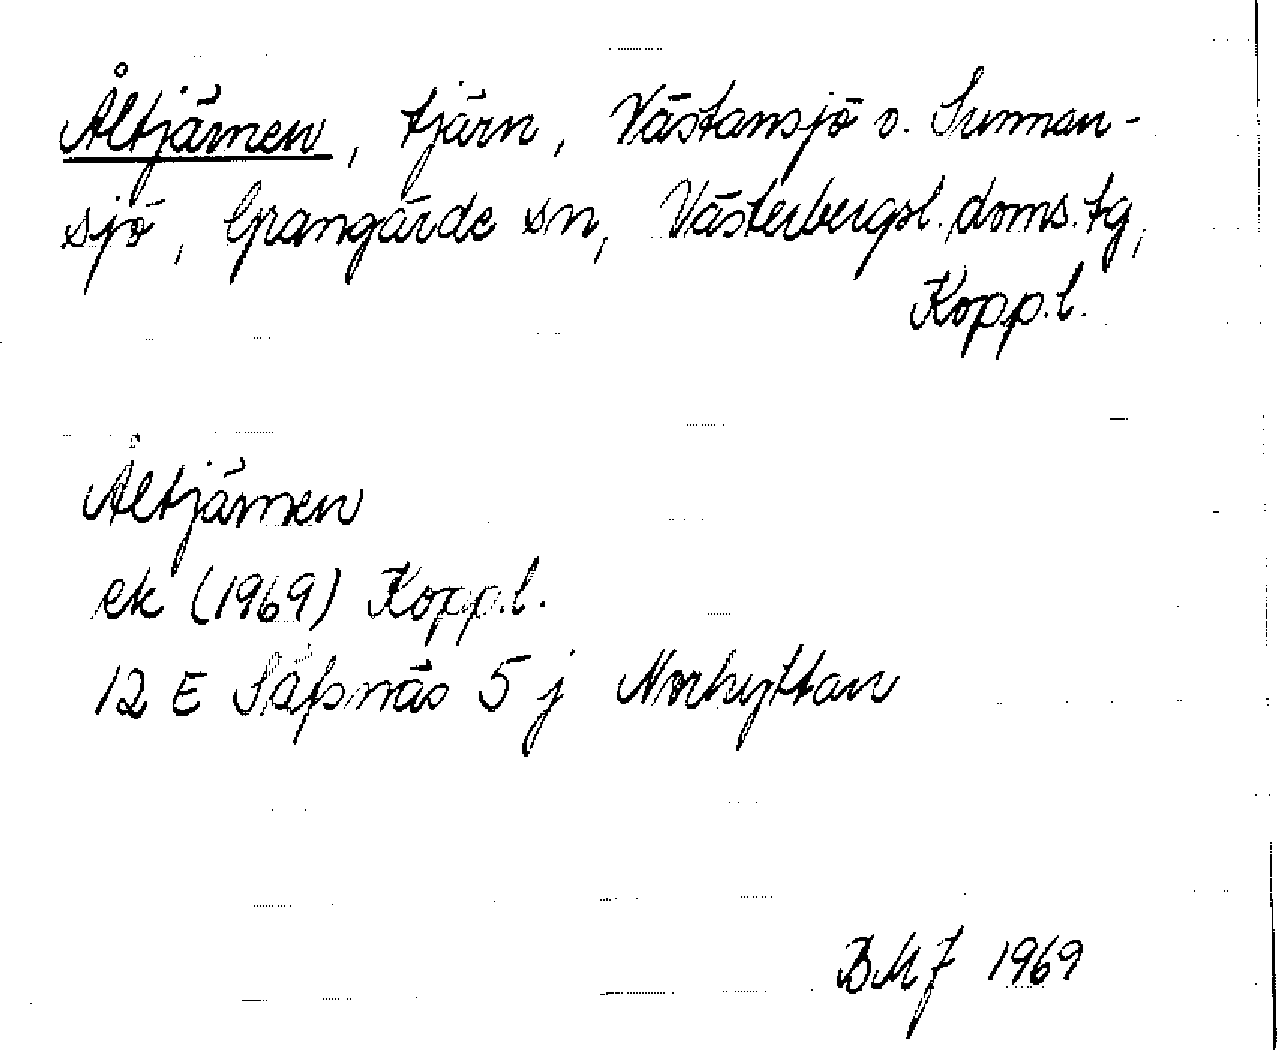 Åltjärnen, tjärn, Västansjö o. Sunnan-
sjö, Grangärde sn, Västerbergsl. doms. tg,
Kopp.l.
Åltjärnen
ek (1969) Kopp.l.
12 E Säfsnäs 5 j Norhyttan
BMJ 1969